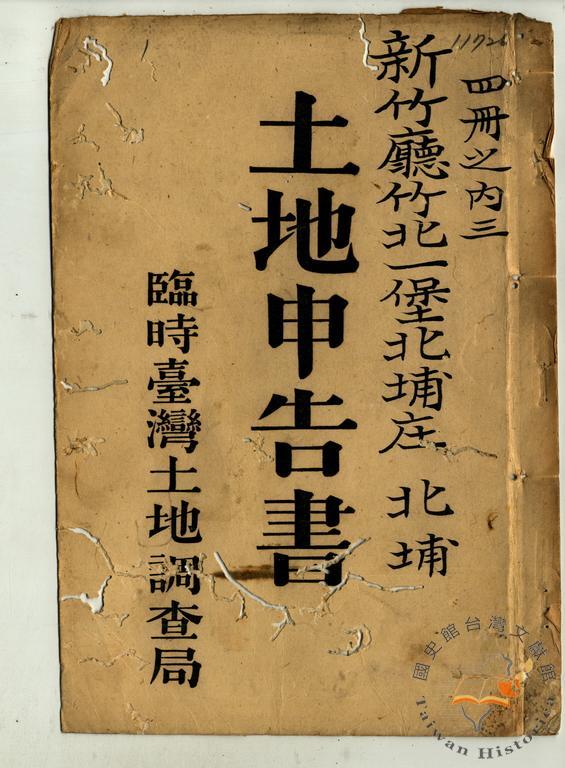 四冊之内三
新竹廳竹北一堡北埔庄 北埔
土地申告書
臨時臺灣土地調查局
國史館台灣文獻館
Taiwan Historica